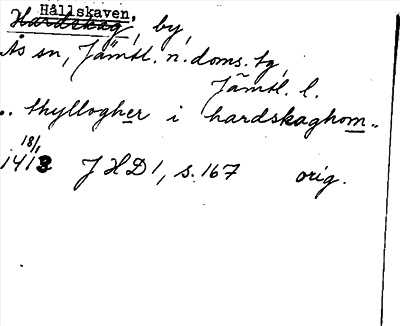 Hållskaven,
Hardskag, by,
Ås sn, Jämtl. n. doms. tg,
Jämtl. l.
.. thyllogher i hardskaghom..
18/1
1413 JHD 1, s. 167 orig.